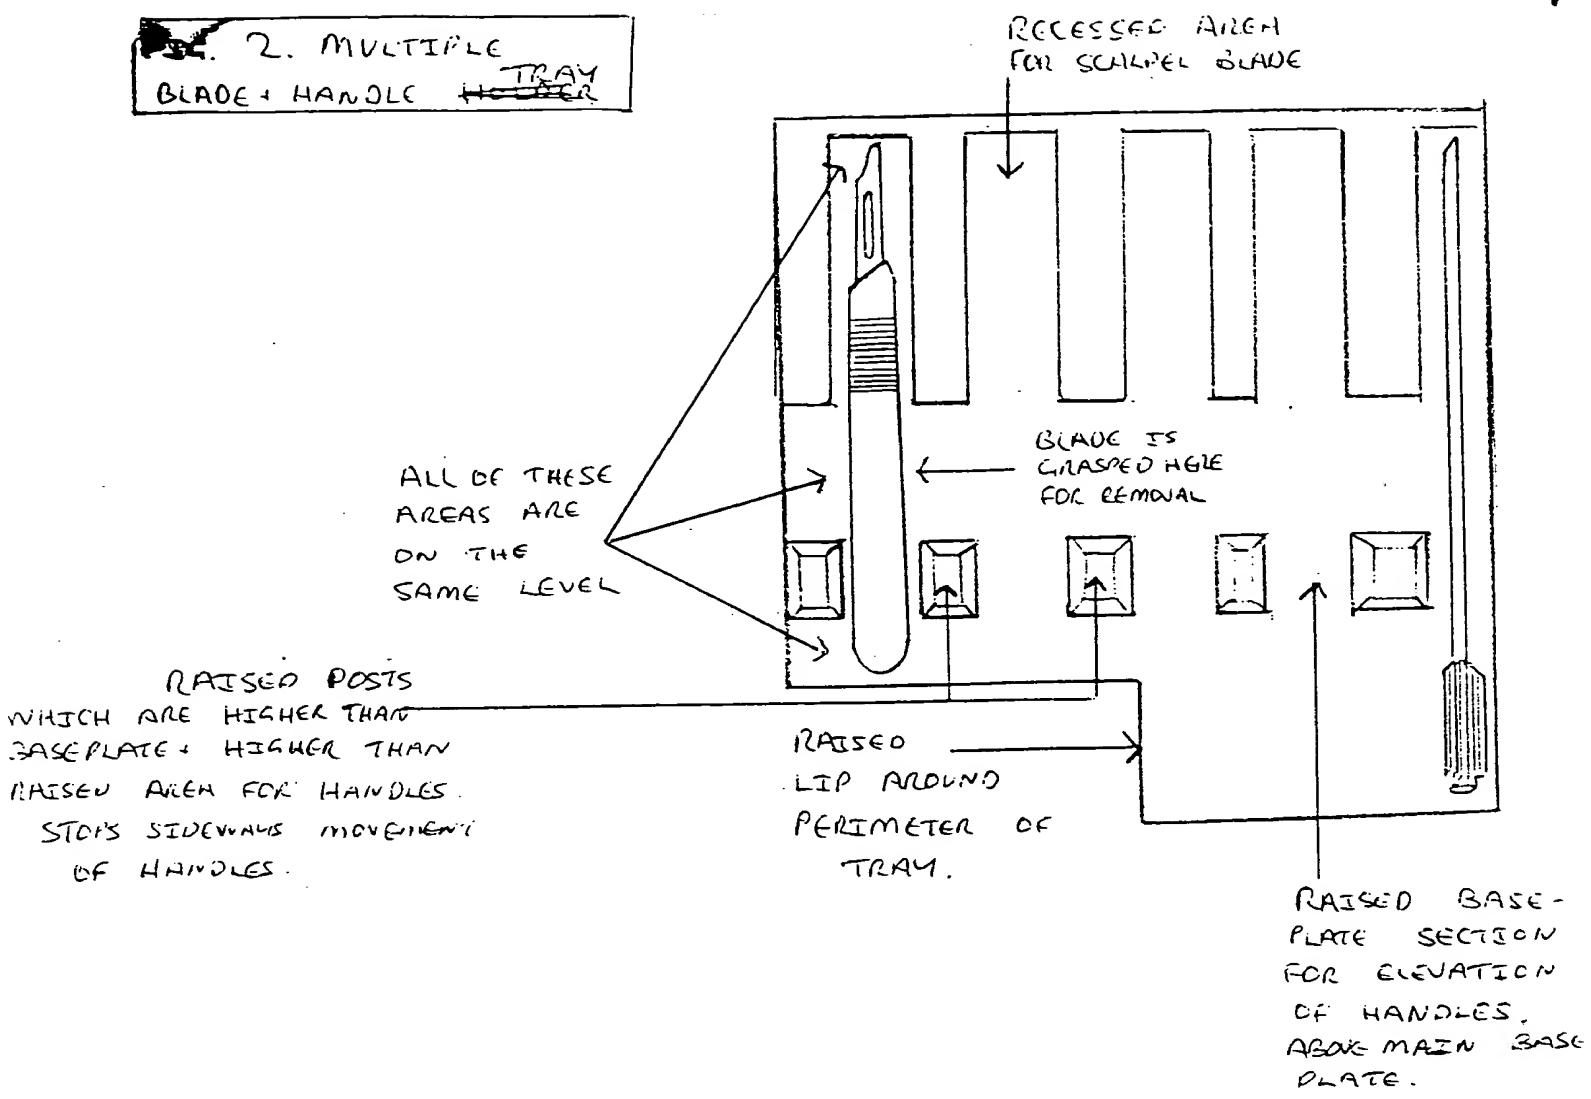 FIG. 2. MULTIPLE
BLADE + HANDLE TRAY
RECESSED AREA
FOR SCALPEL BLADE
BLADE IS
GRASPED HERE
FOR REMOVAL
ALL OF THESE
AREAS ARE
ON THE
SAME LEVEL
RAISED POSTS
WHICH ARE HIGHER THAN
BASEPLATE + HIGHER THAN
RAISED AREA FOR HANDLES.
STOPS SIDEWAYS MOVEMENT
OF HANDLES.
RAISED
LIP AROUND
PERIMETER OF
TRAY.
RAISED BASE-
PLATE SECTION
FOR ELEVATION
OF HANDLES.
ABOVE MAIN BASE
PLATE.